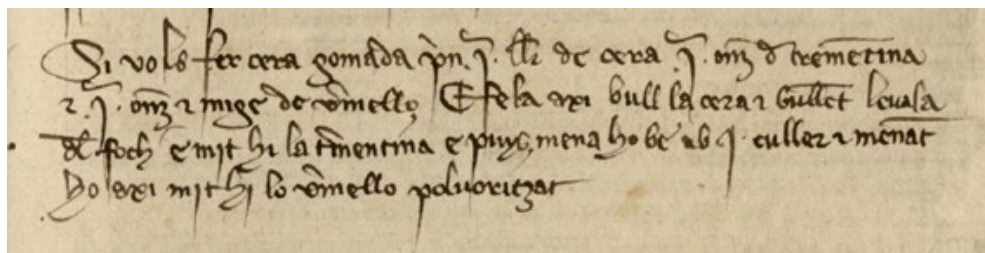 Si vols fer cera gomada pn .j. ll. de cera .j. onz d trementina
e .j. onz e mige de vmello E fe la axi bull la cera e bullet leva la
del foch e mit hi la tmentina e puys mena ho be ab .j. culler e menat
ho axi mit hi lo vmello polvoritzat